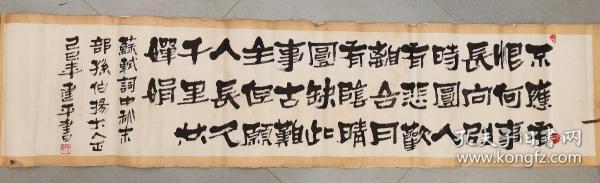 不應有
恨何事
長向別
時圓人
有悲歡
離合月
有陰晴
圓缺此
事古難
全但願
人長久
千里共
嬋娟
蘇軾詞中秋末
部孫伯揚大人正
己巳年建平書
孔夫子旧书网
www.kongfz.com